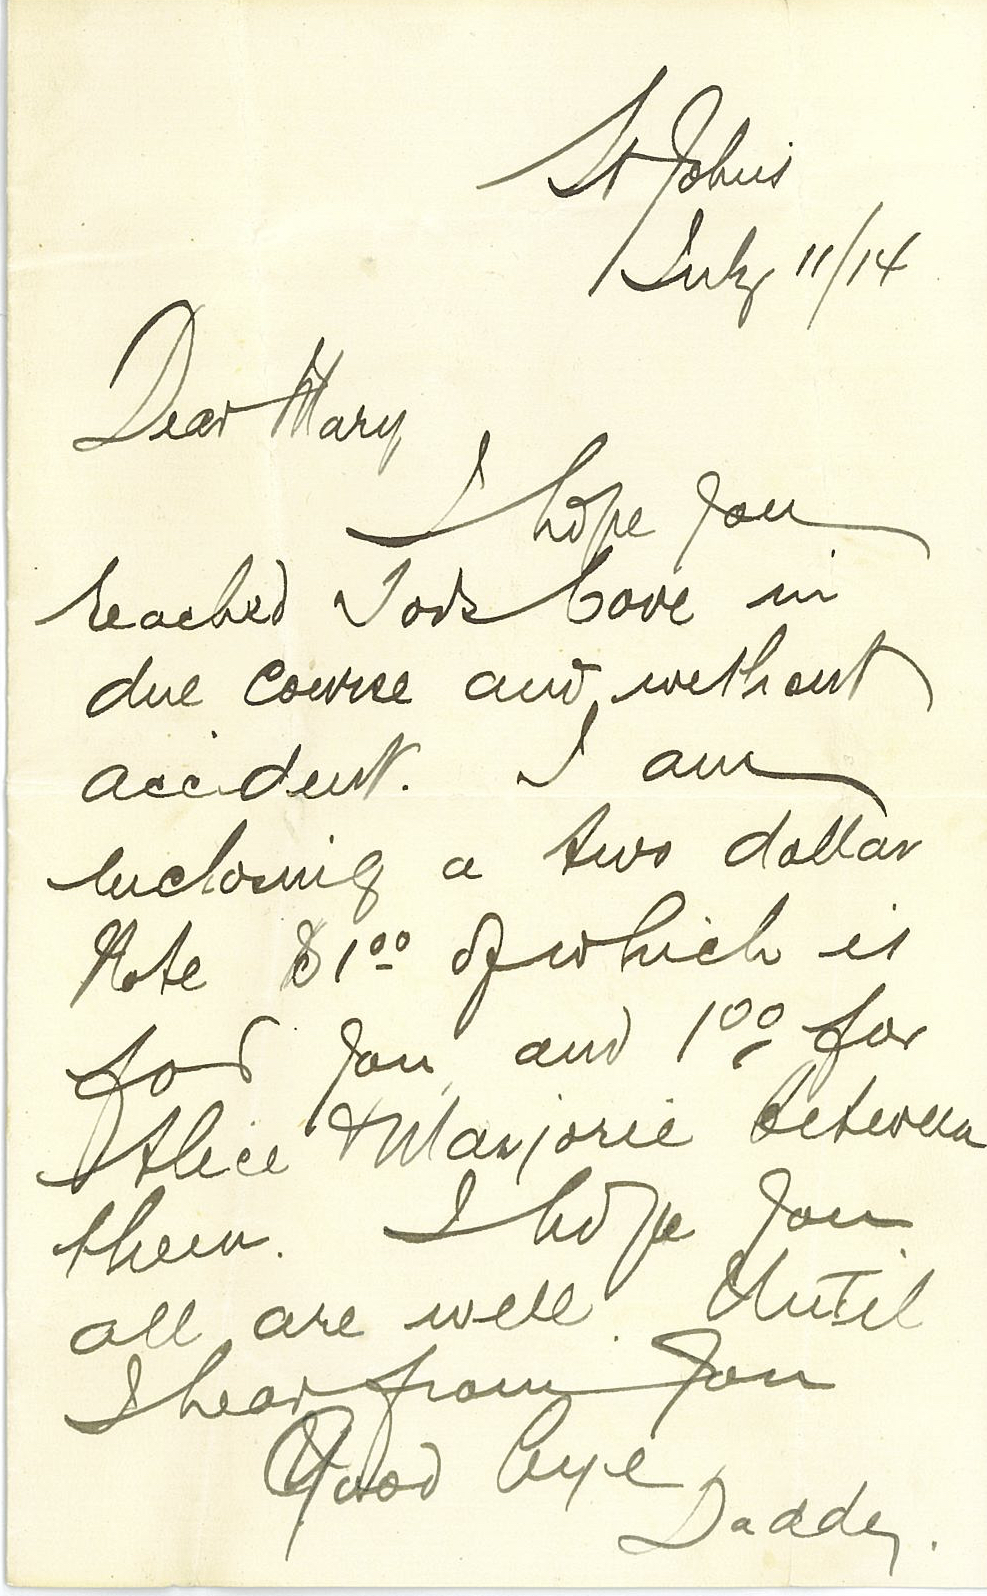 St Johns
July 11/14
Dear Mary,
I hope you
reached Tors Cove in
due course and without
accident. I am
enclosing a two dollar
Note $1.00 of which is
for you and 1.00 for
Alice & Marjorie between
them. I hope you
all are well. Until
I hear from you
Good bye
Daddy.